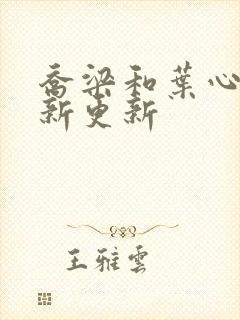 喬梁和葉心
新更新
王雅雲